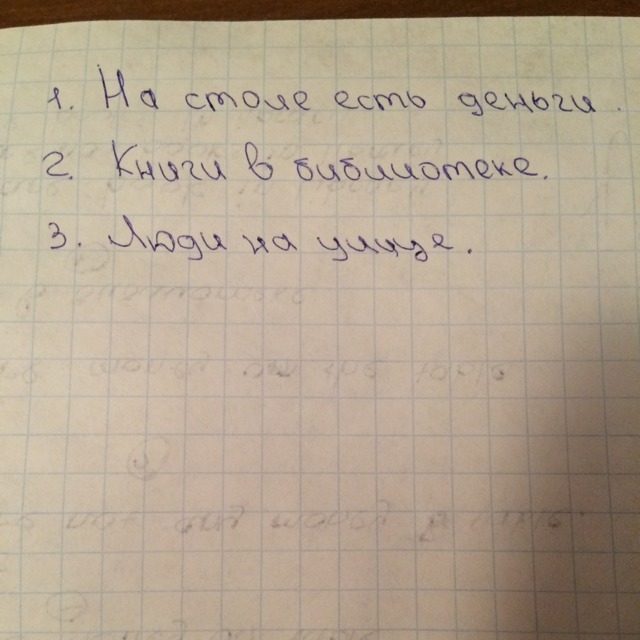 1. На столе есть деньги.
2. Книги в библиотеке.
3. Люди на улице.